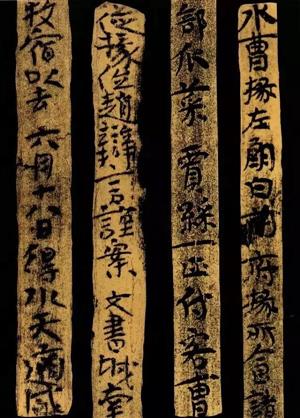 水曹掾左朗白前府掾所食諸
部瓜菜賈綵一匹付客曹
從掾位趙辯言謹案文書城南
牧宿以去六月十八日得水天適盛